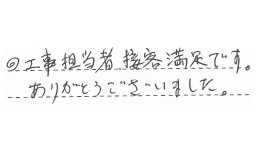 ◎工事担当者接客満足です。
ありがとうございました。